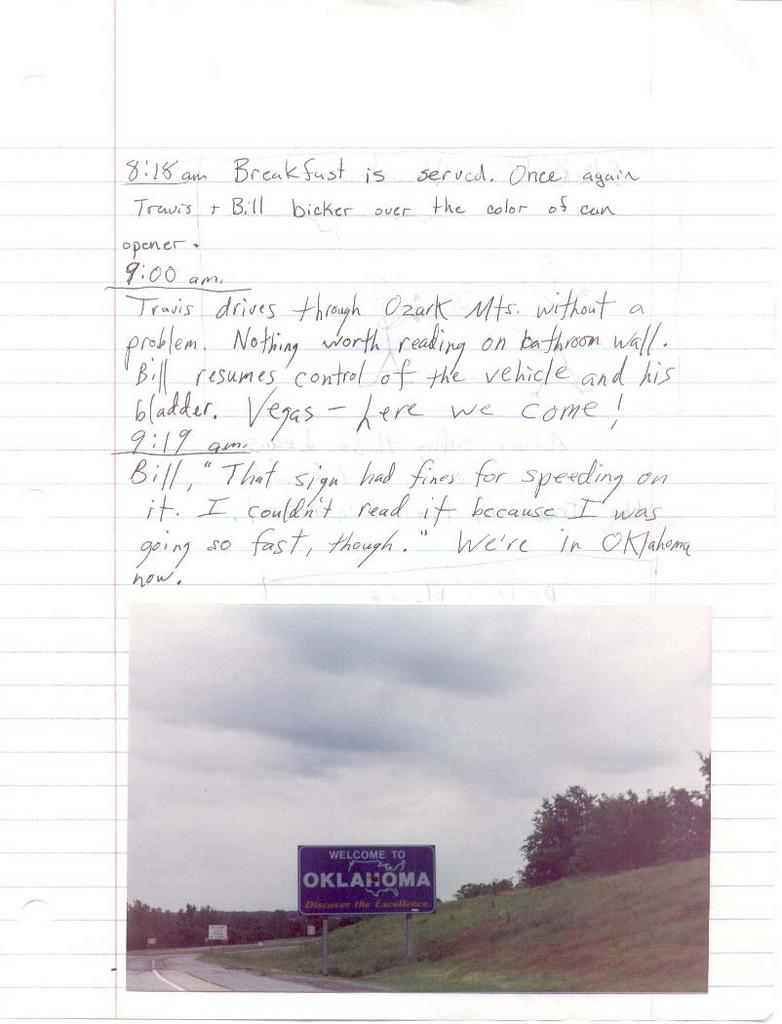 8:18 am Breakfast is served. Once again
Travis + Bill bicker over the color of can
opener.
9:00 am.
Travis drives through Ozark Mts. without a
problem. Nothing worth reading on bathroom wall.
Bill resumes control of the vehicle and his
bladder. Vegas - here we come!
9:19 am.
Bill, "That sign had fines for speeding on
it. I couldn't read it because I was
going so fast, though." We're in Oklahoma
now.
WELCOME TO
OKLAHOMA
Discover the Excellence